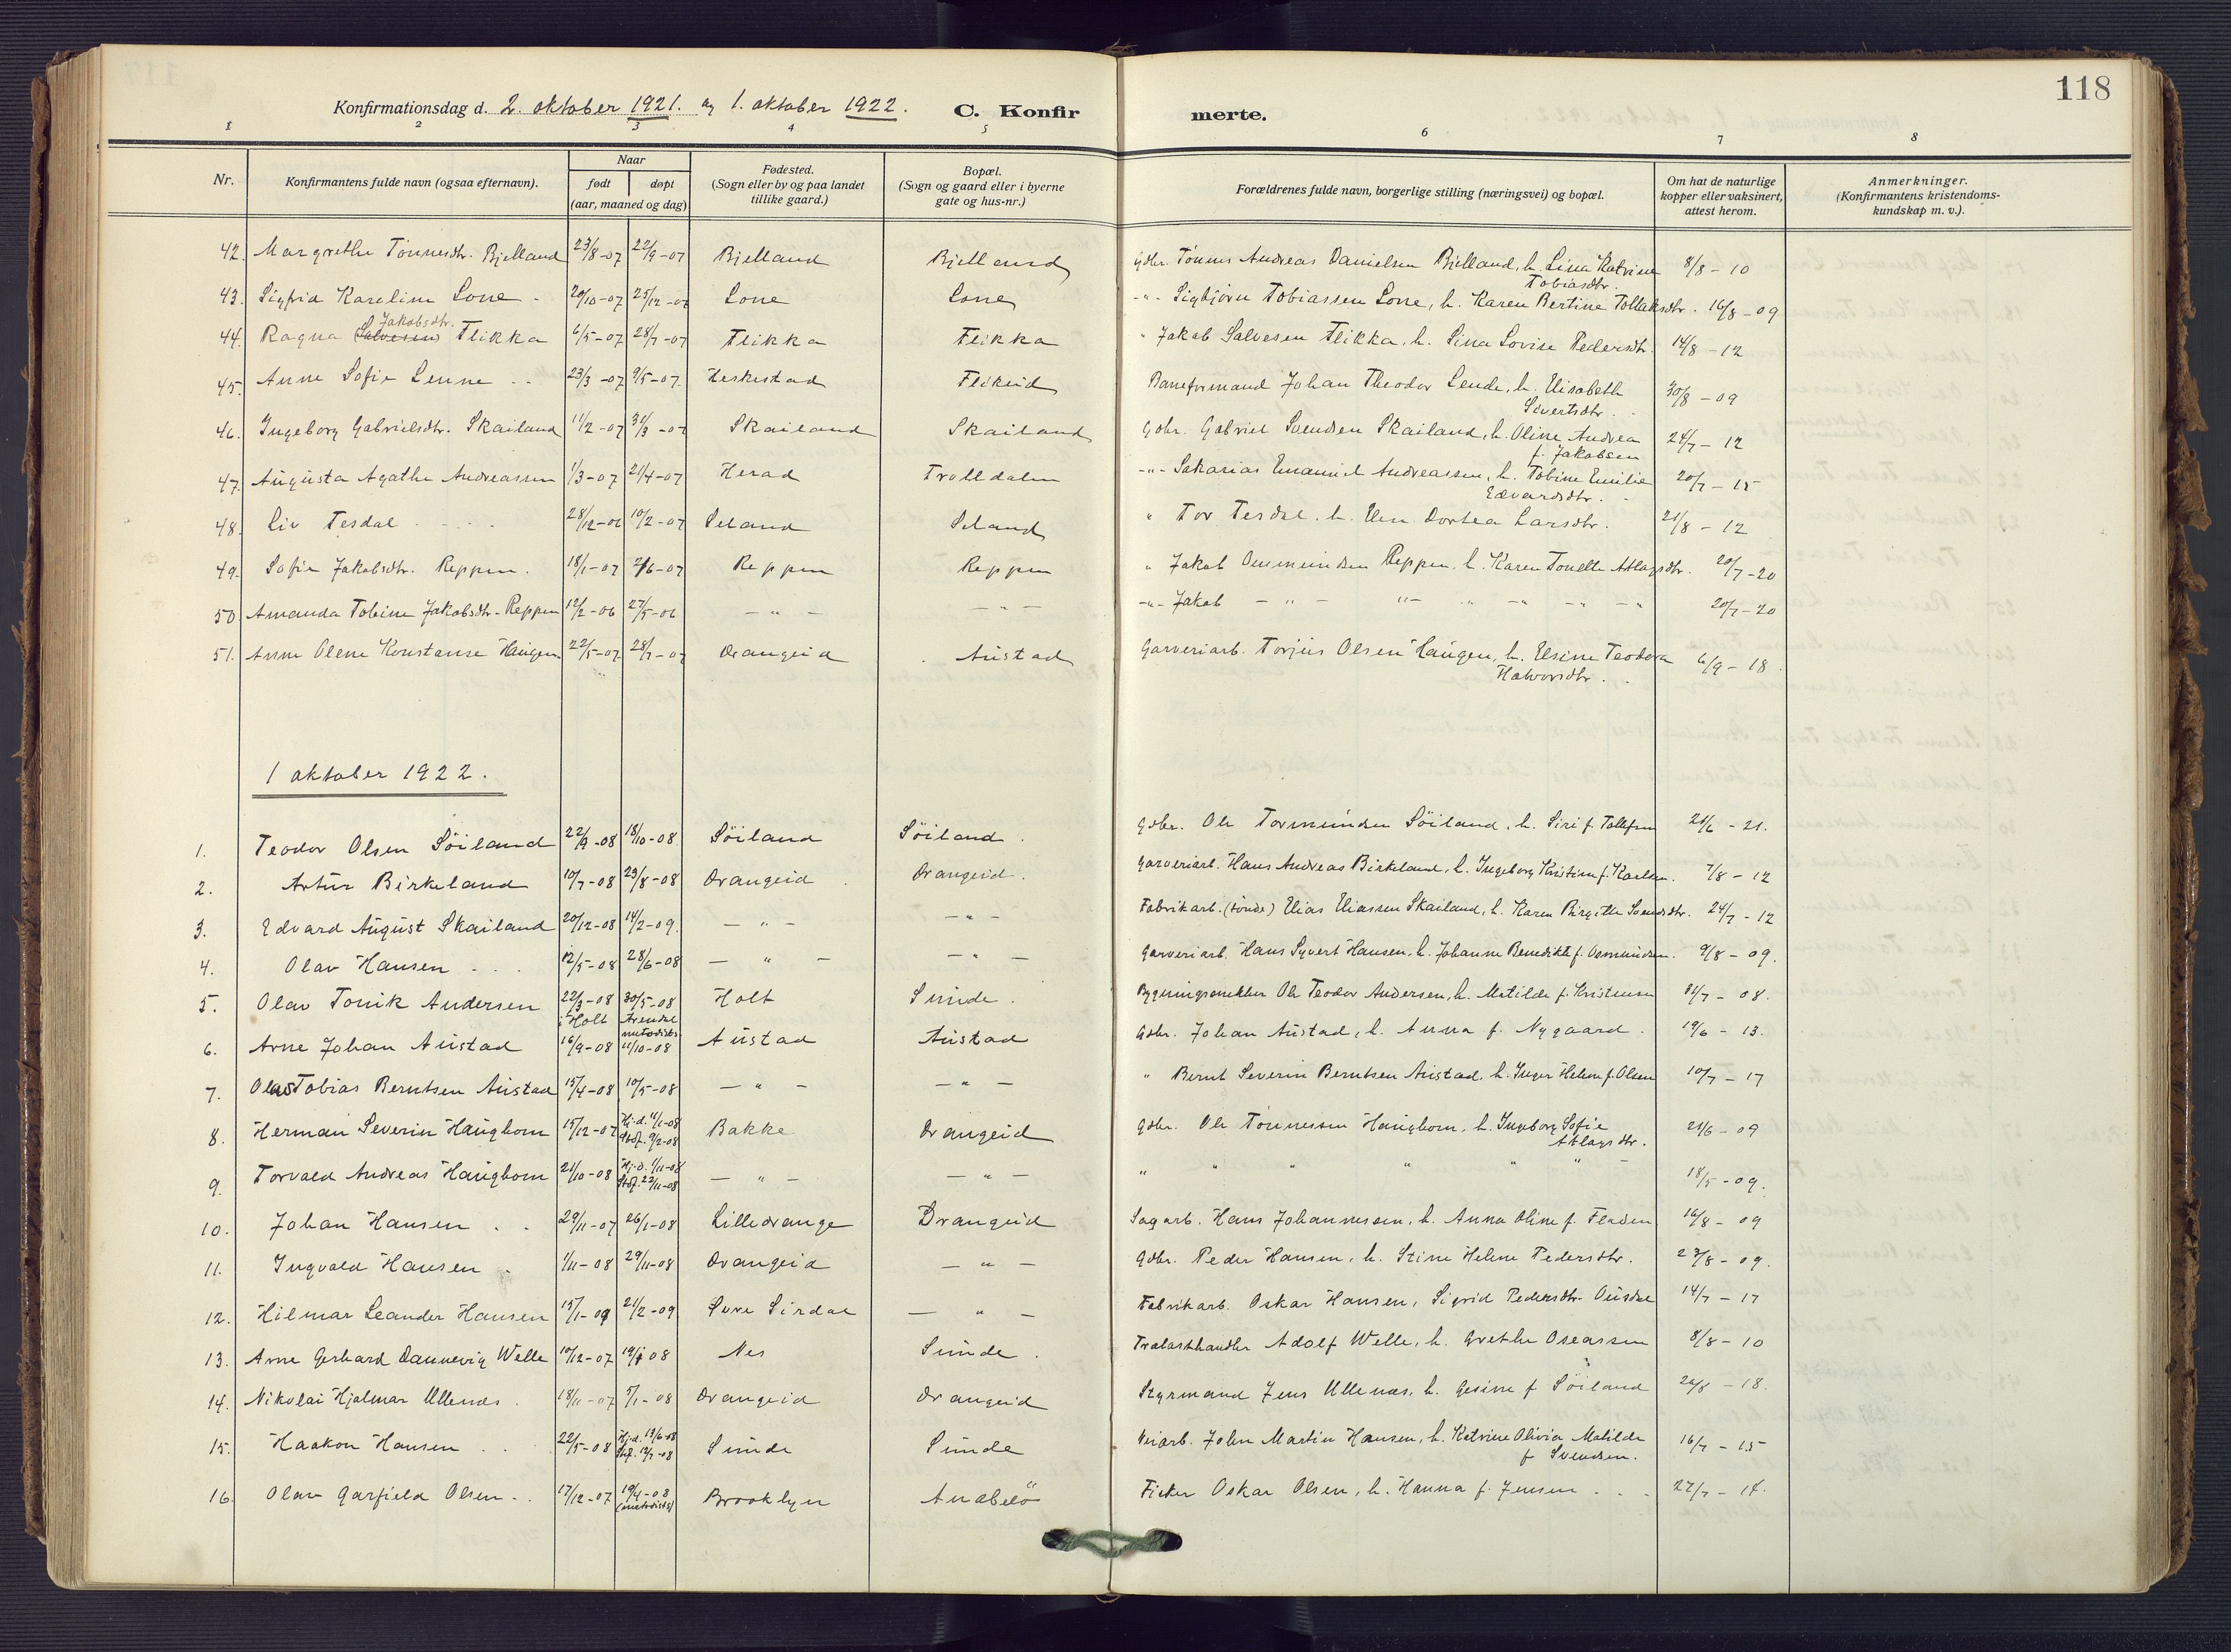 118
Konfirmationsdag d. 2. oktober 1921. og 1. oktober 1922. C. Konfirmerte.
1 2 3 4 5 6 7 8
Nr. Konfirmantens fulde navn (ogsaa efternavn). Naar født døpt (aar, maaned og dag) Fødested. (Sogn eller by og paa landet tillike gaard.) Bopæl. (Sogn og gaard eller i byerne gate og hus-nr.) Forældrenes fulde navn, borgerlige stilling (næringsvei) og bopæl. Om hat de naturlige kopper eller vaksinert, attest herom. Anmerkninger. (Konfirmantens kristendomskundskap m. v.).
42. Margrethe Tønnesdtr. Bjelland 23/8-07 22/9-07 Bjelland Bjelland Gdbr. Tønnes Andreas Danielsen Bjelland, h. Lina Katrine Tobiasdtr. 8/8-10
43. Sigfrid Karoline Lone 20/10-07 25/12-07 Lone Lone -"- Sigbjörn Tobiassen Lone, h. Karen Bertine Tollaksdtr. 16/8-09
44. Ragna Salvesen Jakobsdtr. Flikka 6/5-07 28/7-07 Flikka Flikka " Jakob Salvesen Flikka, h. Sina Lovise Pedersdtr. 14/8-12
45. Anne Sofie Lenne 23/3-07 9/5-07 Heskestad Flikeid Baneformand Johan Theodor Lende, h. Elisabeth Sivertsdtr. 30/8-09
46. Ingeborg Gabrielsdtr. Skailand 11/2-07 31/3-07 Skailand Skailand Gdbr. Gabriel Svendsen Skailand, h. Oline Andrea f. Jakobsen 24/7-12
47. Augusta Agathe Andreassen 1/3-07 21/4-07 Herad Trolldalen -"- Sakarias Emanuel Andreassen, h. Tobine Emilie Edvardsdtr. 20/7-15
48. Liv Tesdal 28/12-06 10/2-07 Seland Seland " Tor Tesdal, h. Elen Dortea Larsdtr. 21/8-12
49. Sofie Jakobsdtr. Reppen. 18/1-07 2/6-07 Reppen Reppen " Jakob Ommundsen Reppen, h. Karen Tonette Atlagsdtr. 20/7-20
50. Amanda Tobine Jakobsdtr. Reppen 12/2-06 27/5-06 -"- -"- -"- Jakob -"- 20/7-20
51. Anne Olene Konstanse Haugen. 22/5-07 28/7-07 Drangeid Austad Garveriarb. Torjus Olsen Haugen, h. Elsine Teodora Halvorsdtr. 6/9-18
1 oktober 1922.
1. Teodor Olsen Söiland 22/9-08 18/10-08 Söiland Söiland Gdbr. Ole Tormundsen Söiland, h. Siri f. Tollefsen 21/6-21.
2. Artur Birkeland 10/7-08 23/8-08 Drangeid Drangeid. Garveriarb. Hans Andreas Birkeland, h. Ingeborg Kristine f. Karlsen. 7/8-12
3. Edvard August Skailand 20/12-08 14/2-09. -"- -"- Fabrikarb. (tönde) Elias Eliassen Skailand, h. Karen Birgitte Svendsdtr. 24/7-12
4. Olav Hansen 12/5-08 28/6-08 -"- -"- Garveriarb. Hans Syvert Hansen, h. Johanne Benedikte f. Osmundsen. 9/8-09.
5. Olav Tonik Andersen 22/3-08 i Holt 30/5-08 Arendal metodists Holt Sunde. Bygningssnekker Ole Teodor Andersen, h. Matilde f. Kristensen 31/7-08.
6. Arne Johan Austad 16/9-08 11/10-08 Austad Austad Gdbr. Johan Austad, h. Anna f. Nygaard. 19/6-13.
7. Olas Tobias Berntsen Austad 15/4-08 10/5-08 -"- -"- " Bernt Severin Berntsen Austad, h. Inger Helene f. Olsen 10/7-17
8. Herman Severin Haughom 15/12-07 Hj.d. 4/1-08 Stdf. 9/2-08 Bakke Drangeid Gdbr. Ole Tönnessen Haughom, h. Ingeborg Sofie Atlagsdtr. 21/6-09
9. Torvald Andreas Haughom 21/10-08 Hj.d. 1/11-08 Stdf. 22/11-08 -"- -"- " " " " " " 18/5-09.
10. Johan Hansen 29/11-07 26/1-08 Lilledrange Drangeid Sagarb. Hans Johannessen, h. Anna Oline f. Fladen 16/8-09
11. Ingvald Hansen 1/11-08 29/11-08 Drangeid -"- Gdbr. Peder Hansen, h. Stine Helene Pedersdtr. 27/8-09.
12. Hilmar Leander Hansen 15/1-09 21/2-09. Övre Sirdal -"- Fabrikarb. Oskar Hansen, Sigrid Pedersdtr. Ousdal 14/7-17
13. Arne Gerhard Dannevig Welle 10/12-07 19/1 08 Nes Sunde. Trælasthandler Adolf Welle, h. Grethe Oseassen 8/8-10
14. Nikolai Hjalmar Ullenæs 18/11-07 5/1-08 Drangeid Drangeid Styrmand Jens Ullenæs, h. Gesine f. Söiland 20/8-18.
15. Haakon Hansen 22/5-08 Hj.d. 13/6-08 Stdf. 12/7-08 Sunde Sunde Veiarb. John Martin Hansen, h. Katrine Olivia Matilde f. Svendsen. 16/7-15
16. Olav Garfield Olsen 17/12-07 19/4-08 (metodists) Brooklyn Anabelö Fisker Oskar Olsen, h. Hanna f. Jensen 27/7-14.